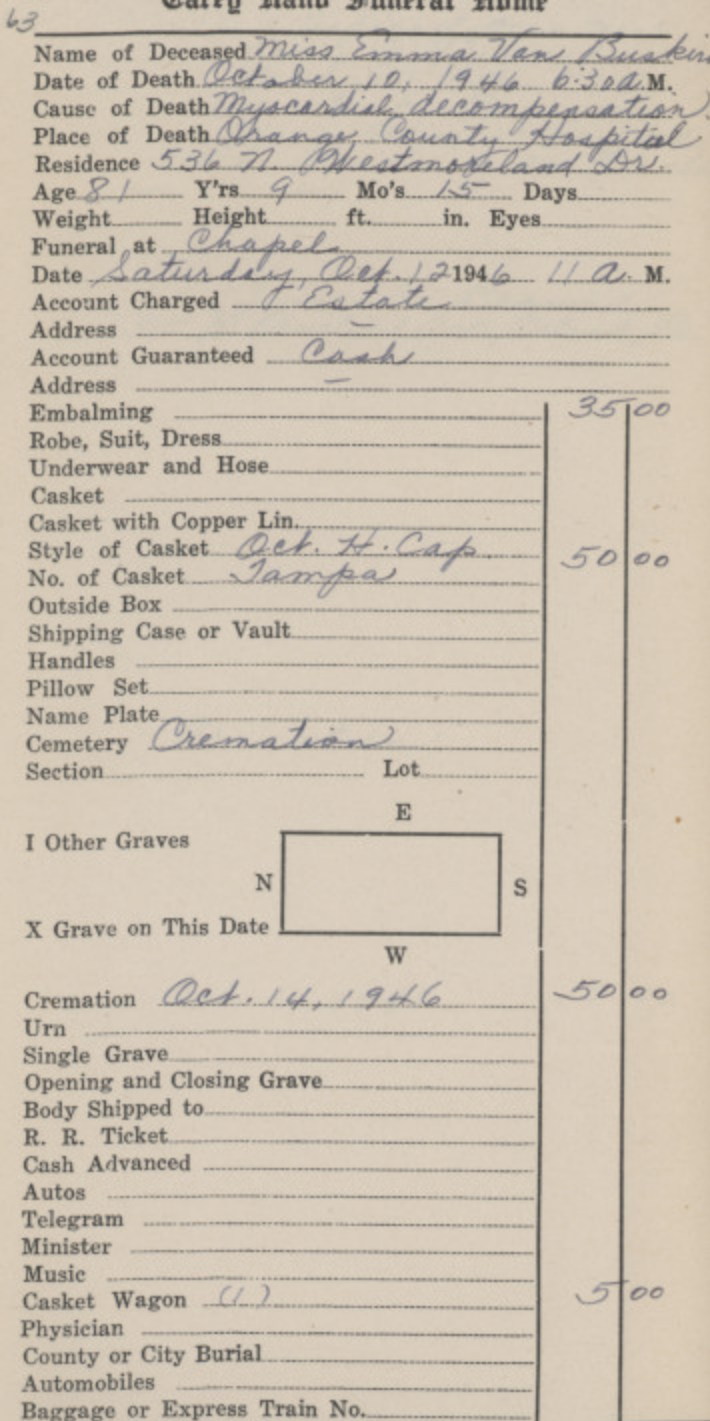 63
Carey Hand Funeral Home
Name of Deceased Miss Emma Van Buskir
Date of Death October 10, 1946 6:30 a M.
Cause of Death Myocardial decompensation
Place of Death Orange County Hospital
Residence 536 N. Westmoreland Dr.
Age 81 Y'rs 9 Mo's 15 Days
Weight Height ft. in. Eyes
Funeral at Chapel
Date Saturday, Oct. 12 1946 11 a. M.
Account Charged Estate
Address —
Account Guaranteed Cash
Address —
Embalming 35 00
Robe, Suit, Dress
Underwear and Hose
Casket
Casket with Copper Lin.
Style of Casket Oct. H. Cap 50 00
No. of Casket Tampa
Outside Box
Shipping Case or Vault
Handles
Pillow Set
Name Plate
Cemetery Cremation
Section Lot
E
I Other Graves
N S
X Grave on This Date
W
Cremation Oct. 14, 1946 50 00
Urn
Single Grave
Opening and Closing Grave
Body Shipped to
R. R. Ticket
Cash Advanced
Autos
Telegram
Minister
Music
Casket Wagon (1) 5 00
Physician
County or City Burial
Automobiles
Baggage or Express Train No.